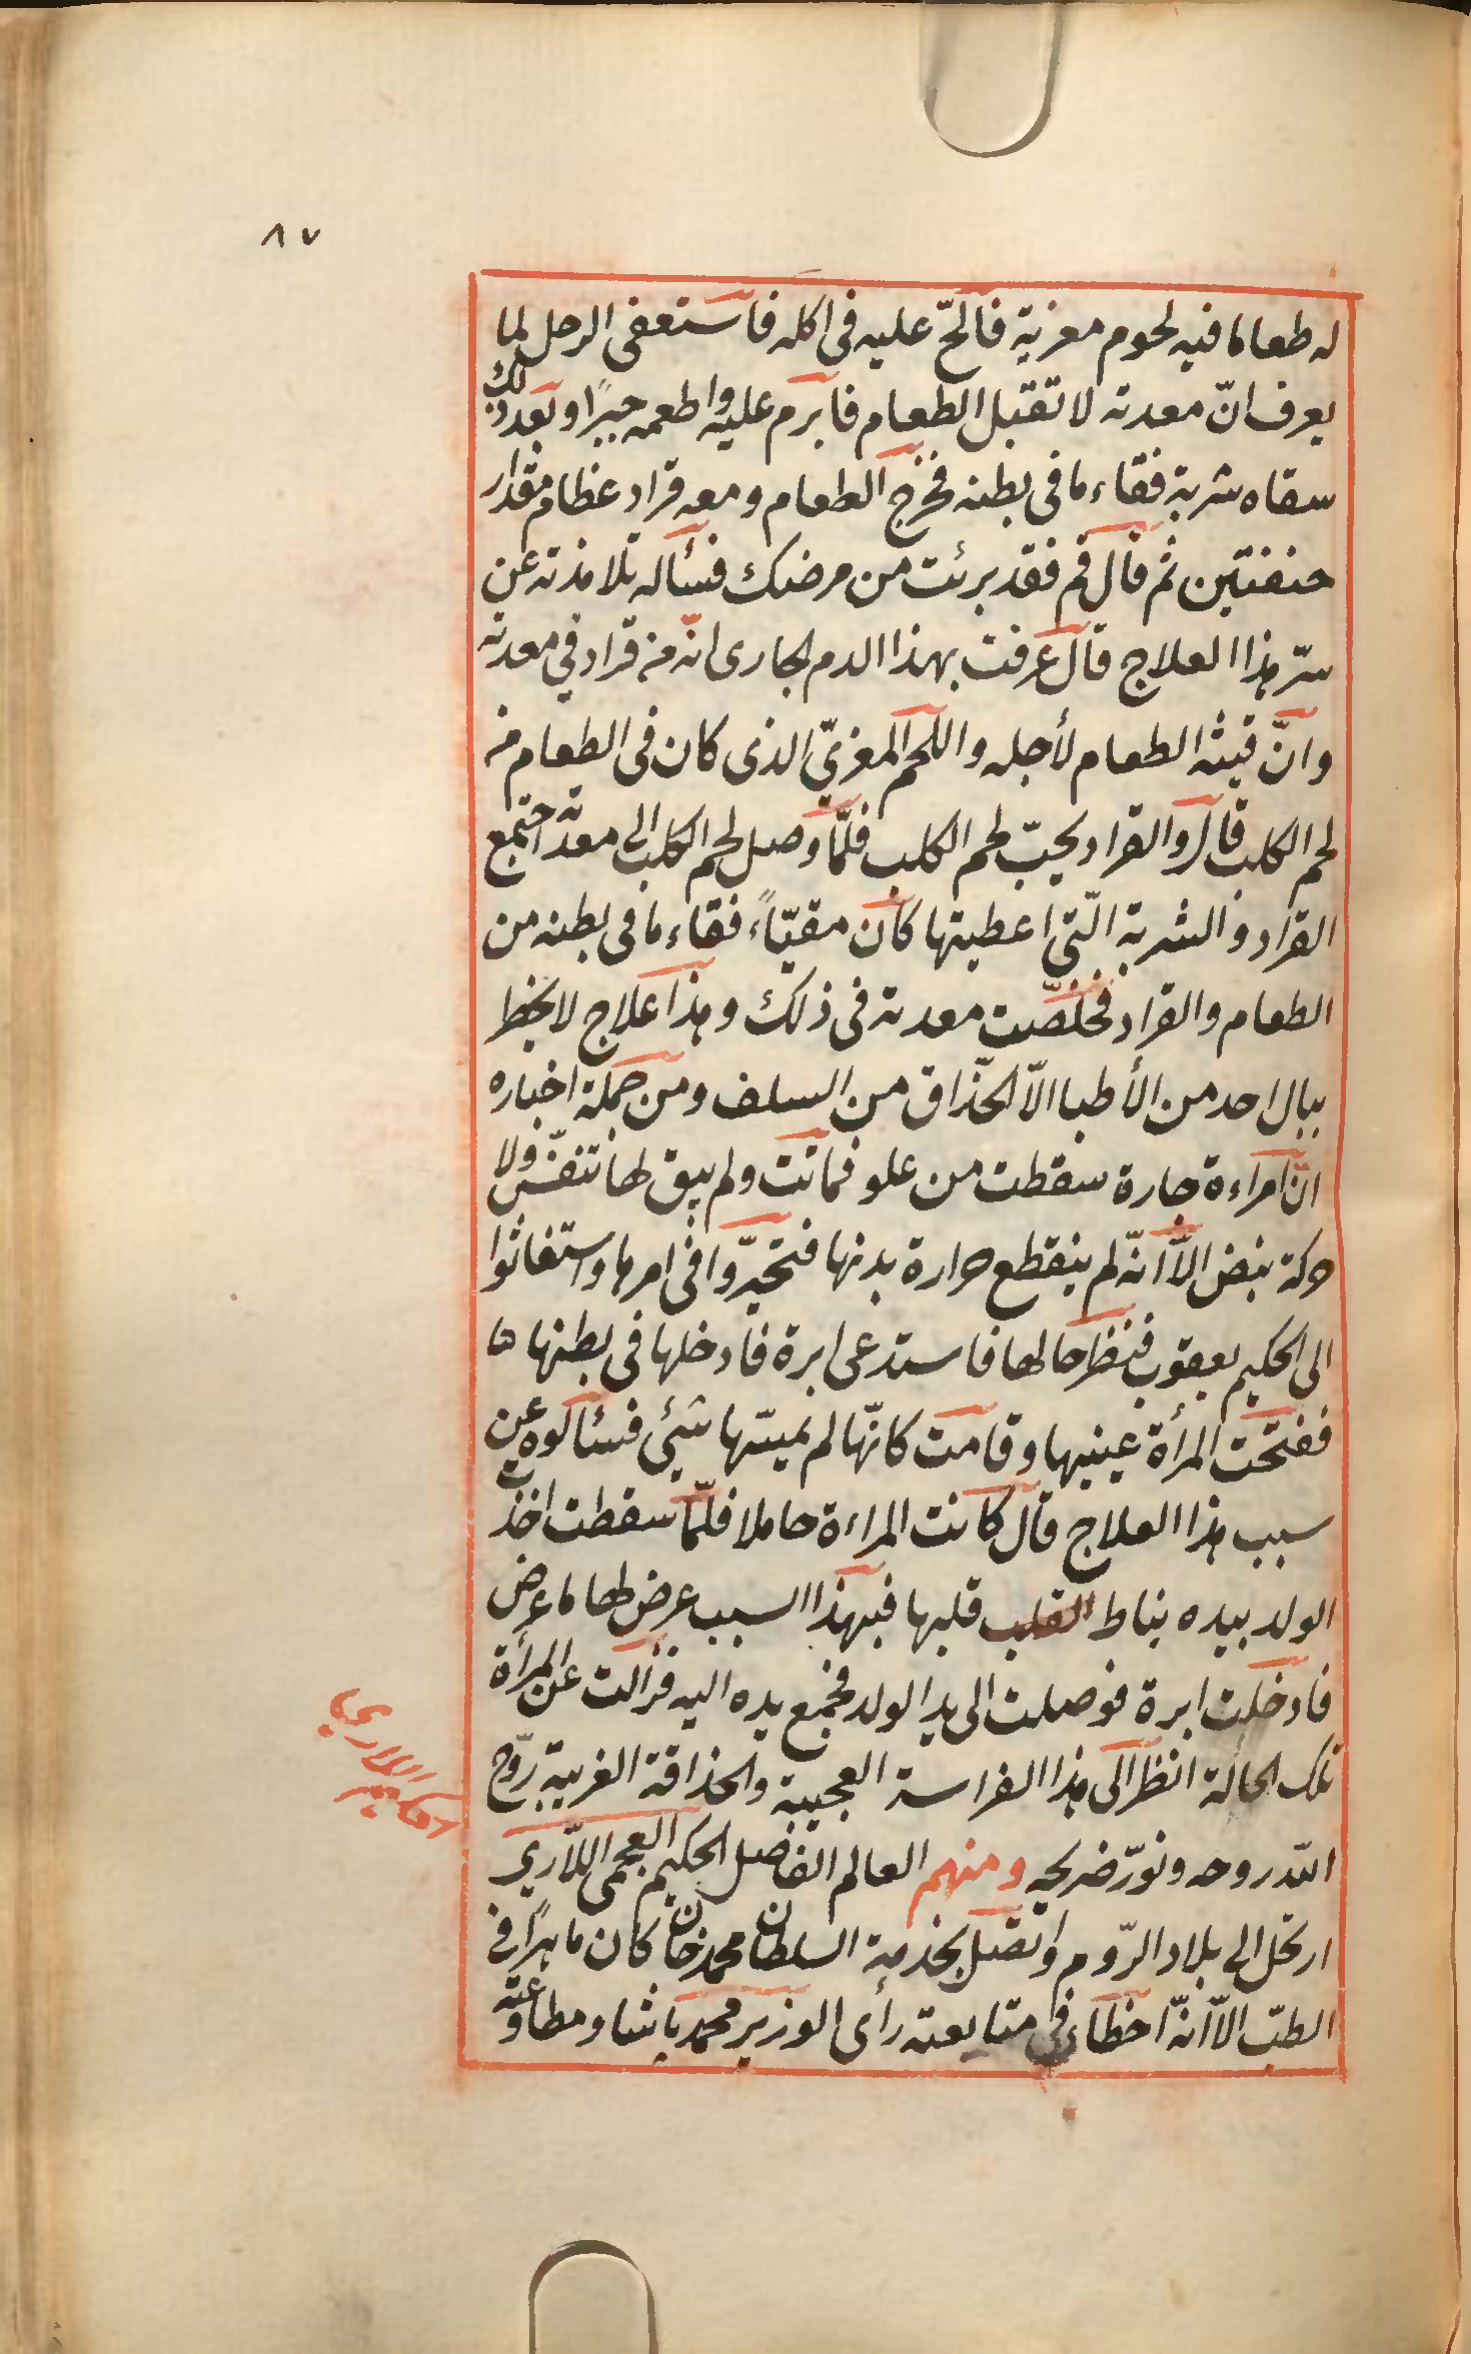 ٨٧
له طعاما فيه لحوم مغرية فالحّ عليه فى اكله فاستعفى الرجل لما
يعرف انّ معدته لا تقبل الطعام فابرم عليه واطعمه جبرًا وبعد ذلك
سقاه شربة فقاء ما فى بطنه فخرج الطعام ومعه قراد عظام مقدار
حفنتين ثم قال قم فقد برئت من مرضك فسأله تلامذته عن
سرّ هذا العلاج قال عرفت بهذا الدم الجارى انّه من قراد في معدته
وانّ قيئه الطعام لأجله واللحم المغريّ الذى كان فى الطعام من
لحم الكلب قال والقراد يحبّ لحم الكلب فلمّا وصل لحم الكلب الى معدته اجتمع
القراد والشربة الّتي اعطيتها كان مقيّاً، فقاء ما فى بطنه من
الطعام والقراد فخلصّت معدته فى ذلك وهذا علاج لا يخطر
ببال احد من الأطبا الاّ الحذّاق من السلف ومن جملة اخباره
انّ امراءة جارة سقطت من علو فماتت ولم يبق لها تنفّس ولا
حركة نبض الاّ انّه لم ينقطع حرارة بدنها فتحيّروا فى امرها واستغاثوا
الى الحكيم يعقوب فنظر حالها فاستدعى ابرة فادخلها فى بطنها
ففتحت المرأة عينيها وقامت كانّها لم يمسّها شيئ فسئالوه عن
سبب هذا العلاج قال كانت المراءة حاملا فلمّا سقطت اخذ
الولد بيده نياط القلب قلبها فبهذا السبب عرض لها ما عرض
فادخلت ابرة فوصلت الى يد الولد فجمع يده اليه فزالت عن المرأة
تلك الحالة انظر الى هذا الفراسة العجيبة والحذاقة الغريبة روّح
اللّه روحه ونوّر ضريحه ومنهم العالم الفاضل الحكيم العجمى اللّاري
ارتحل الى بلاد الرّوم واتصل بخدمة السلطان محمد خان كان ماهرًا فى
الطبّ الاّ انّه اخطاء فى متابعته رأى الوزير محمد باشا ومطاوعته
حكيم اللاري